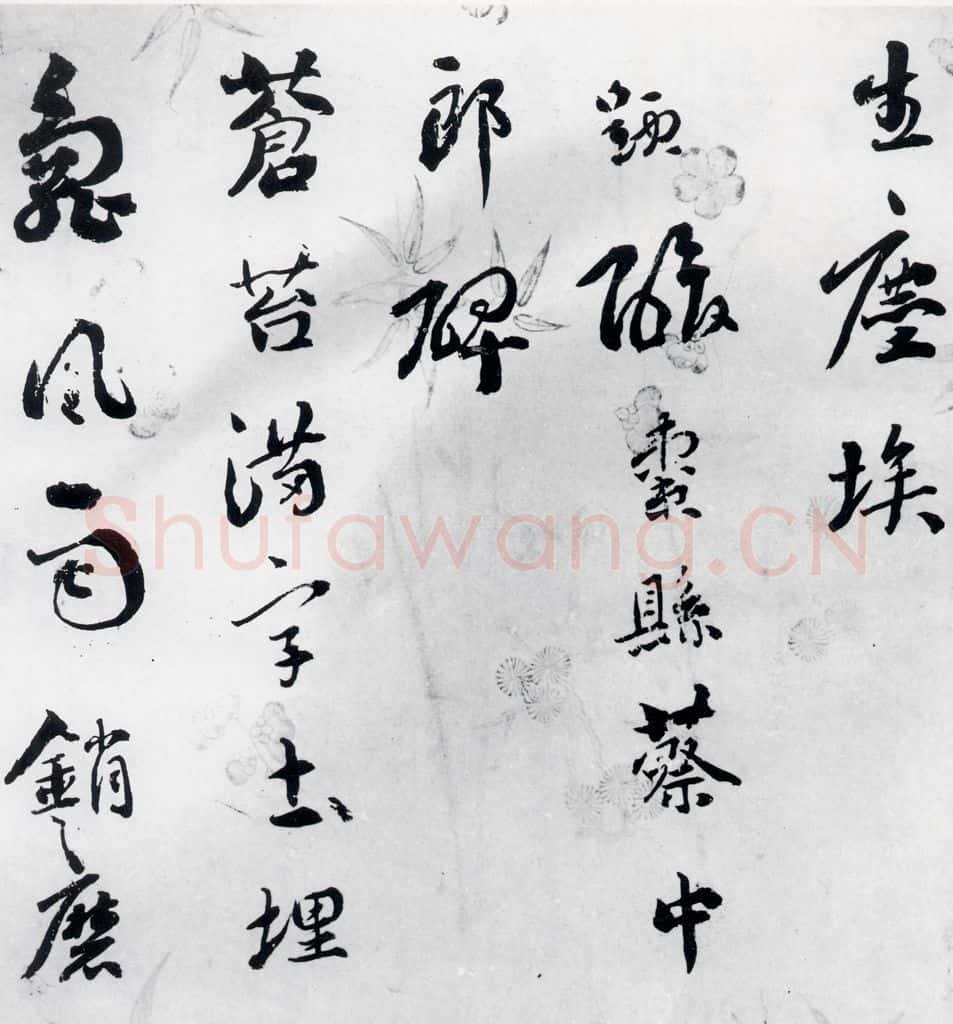 生塵埃
題酸棗縣蔡中
郎碑
蒼苔滿字土埋
龜風雨銷磨
Shufawang.CN